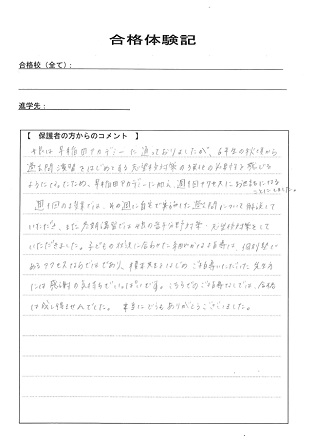 合格体験記
合格校（全て）：
進学先：
【 保護者の方からのコメント 】
娘は早稲田アカデミーに通っておりましたが、6年生の秋頃から
過去問演習をはじめてから志望校対策の
ようになったため、早稲田アカデミーに加え、週1回サクセスにお世話になる
ことにしました。
週1回の授業では、その週に自宅で実施した過去問について解説して
いただき、また 講習では娘の苦手分野対策・志望校対策をして
いただきました。子どもの状況に合わせた細やかなご指導は、個別塾で
あるサクセスならではであり、 先生をはじめ ご指導いただいた先生方
には感謝の気持ちでいっぱいです。こちらでのご指導なしでは、合格
は成し得ませんでした。本当にどうもありがとうございました。